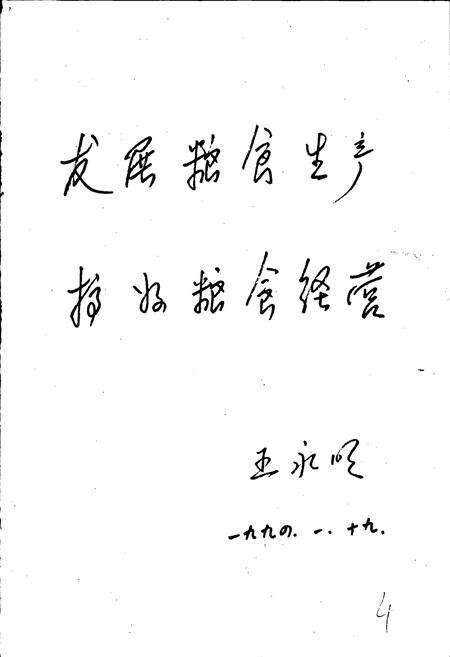 发展粮食生产
搞好粮食经营
王永明
一九九四.一.十九.
4